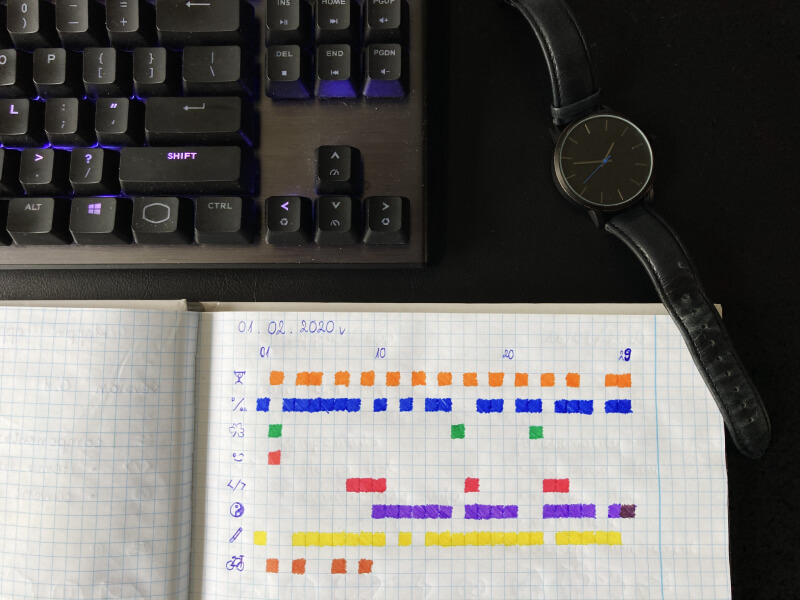 INS HOME PGUP
0 ) - _ = + ←
DEL END PGDN
O P { [ } ] | \
L : ; " '
> . ? / SHIFT
ALT CTRL
01.02.2020
01 10 20 29